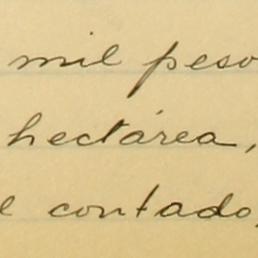 mil peso
hectárea,
l contado,